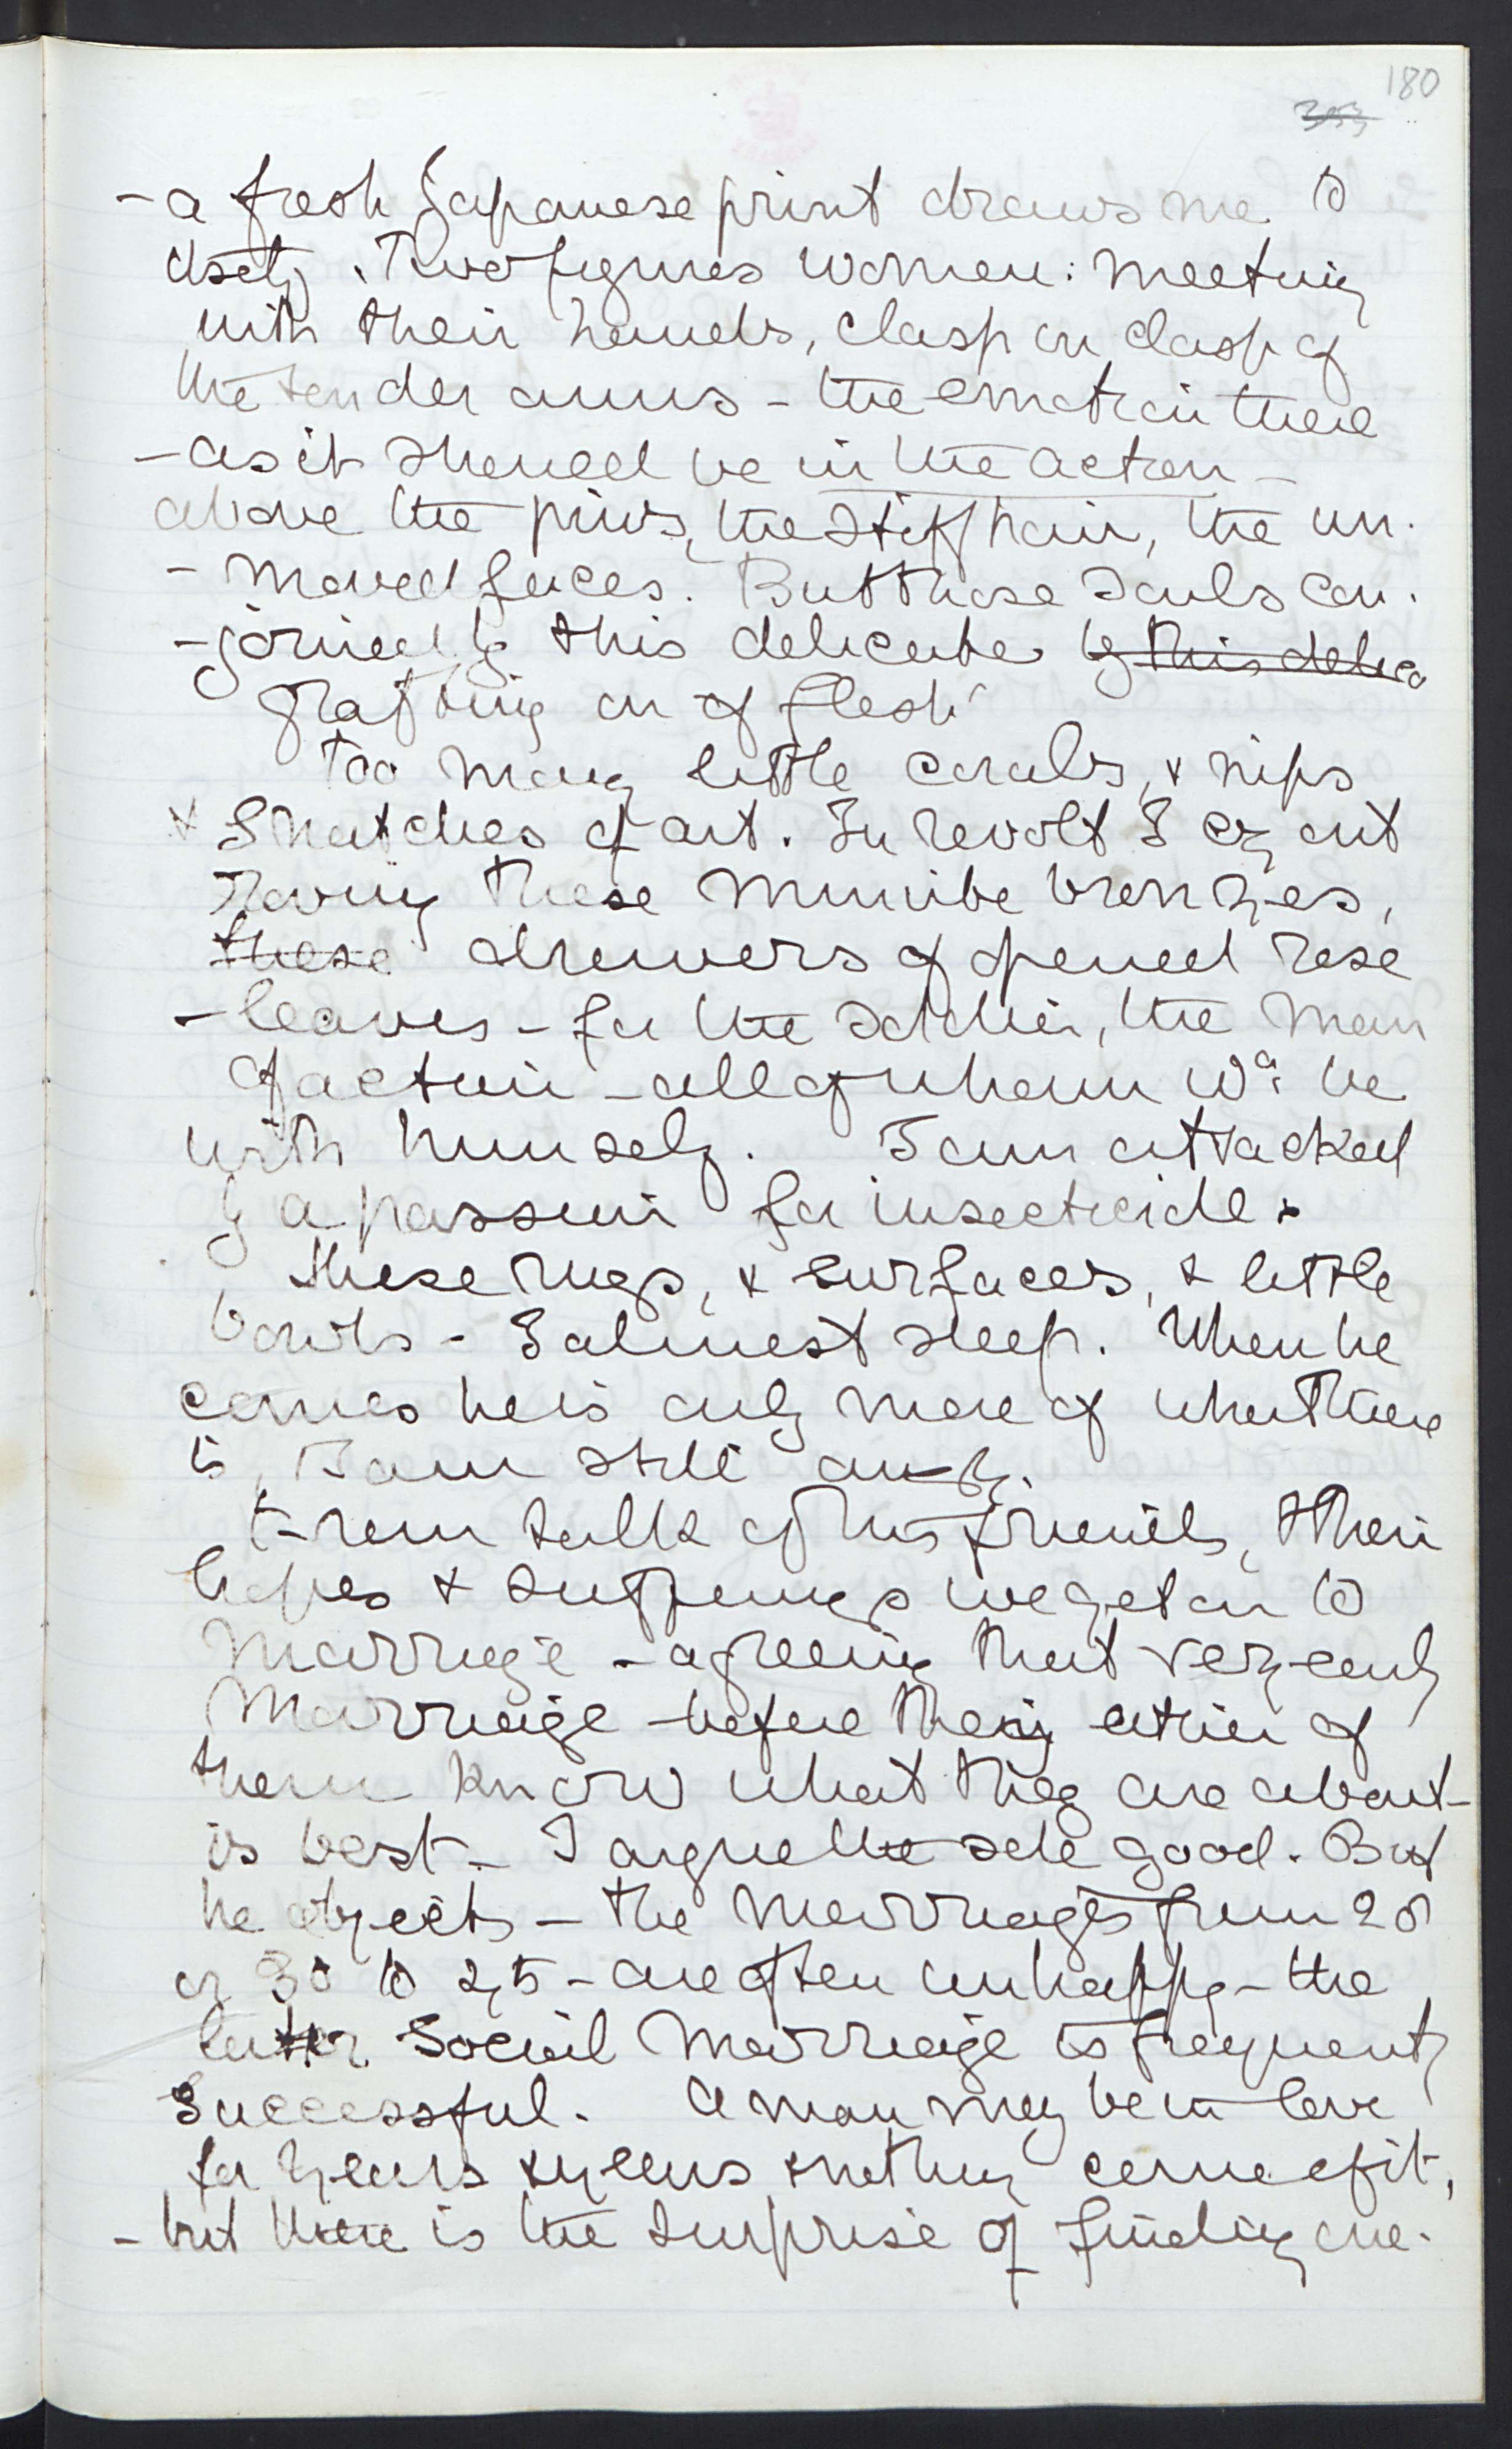 180
353
- a fresh Japanese print draws me to
itself. Two figures women: meeting
with their hands, clasp on clasp of
the tender arms - the emotion there
- as it should be in the action -
above the pins, the stiff hair, the un-
- moved faces. But those souls con-
- joined by this delicate by this delica
grafting on of flesh!
Too many little corals, & nips
& snatches of art. In revolt I cry out
Having these minute bronzes,
these drawers of opened rose
- leaves - for the soldier, the man
of action - all of whom wd. be
with himself. I am attacked
by a passion for insecticide.
These rugs, & surfaces, & little
bowls - I almost sleep. When he
comes he is only more of what there
is, I am still angry.
From talk of his friends, & their
hopes & sufferings we get on to
Marriage - agreeing that very early
Marriage - before they either of
them know what they are about -
is best - I argue the sole good. But
he objects - the marriages from 20
or 30 to 25 - are often unhappy - the
later social marriage is frequently
successful. A man may be in love
for years & years & nothing come of it,
- but there is the surprise of finding one-